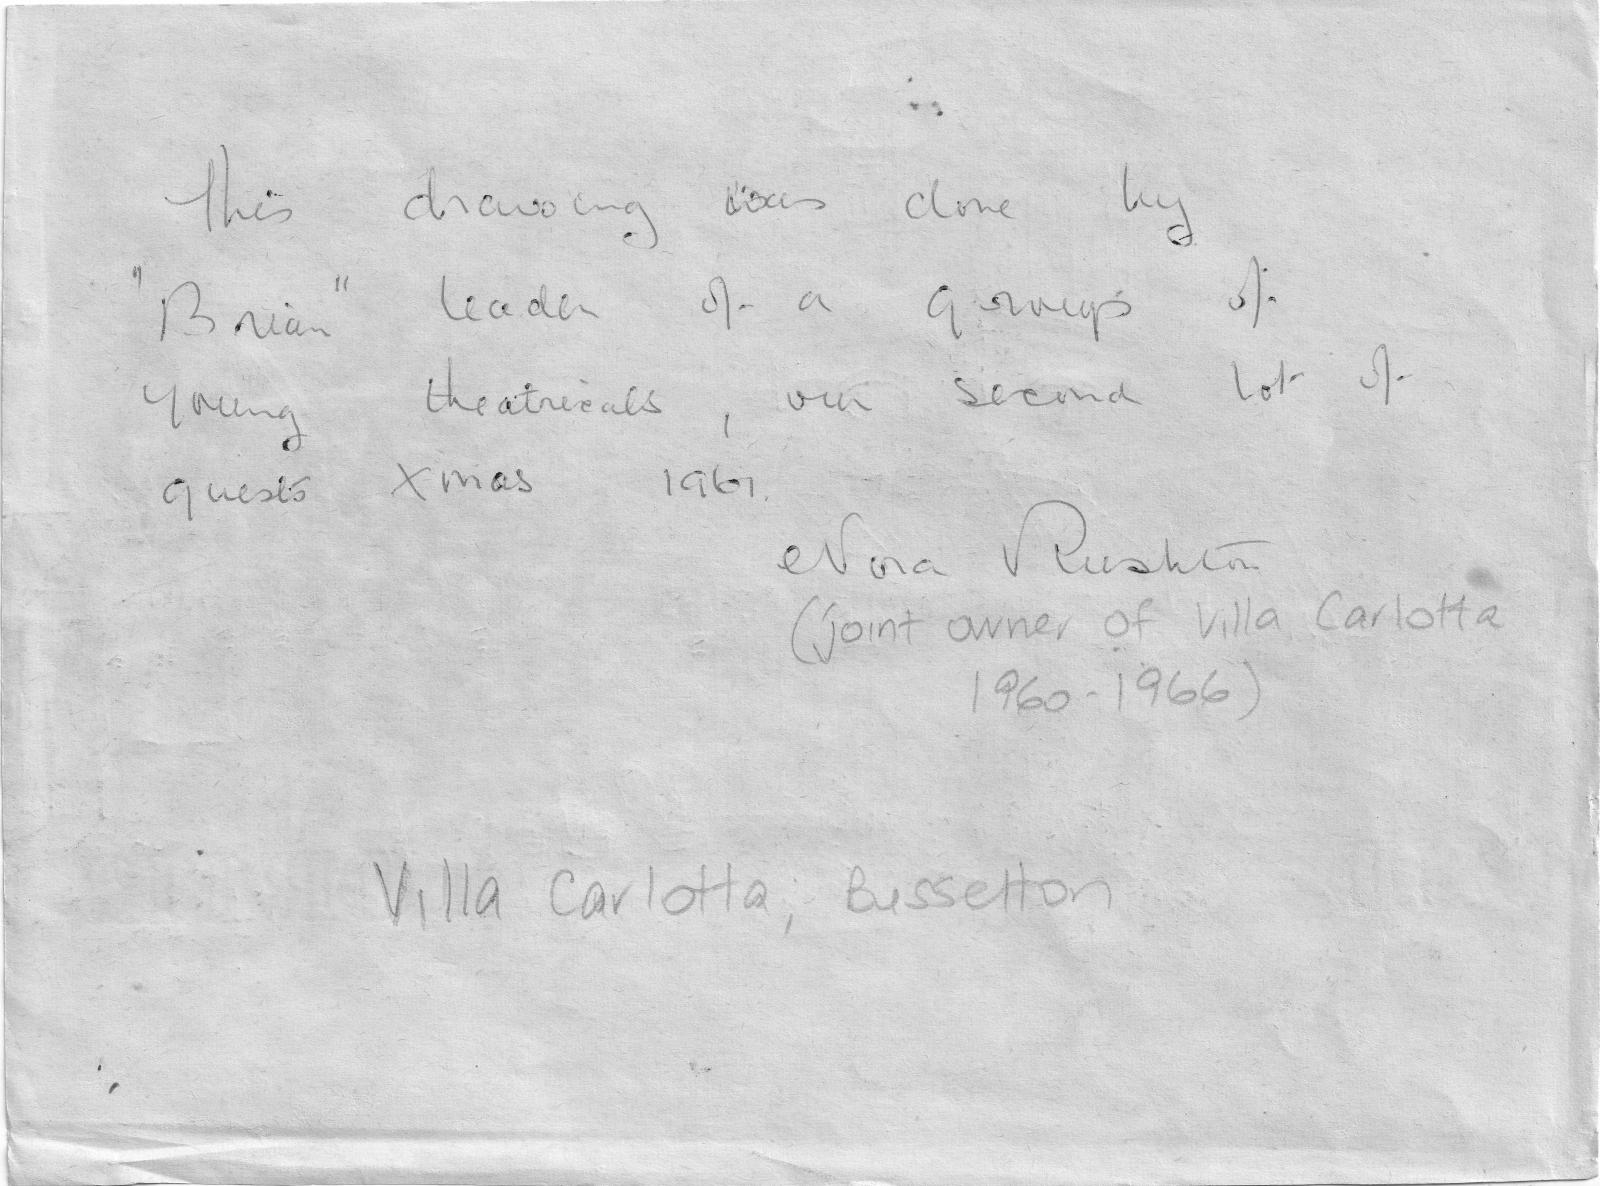 This drawing was done by
"Brian" leader of a groups of
young theatricals, our second lot of
guests Xmas 1961.
Nora Rushton
(joint owner of Villa Carlotta
1960-1966)
Villa Carlotta, Busselton